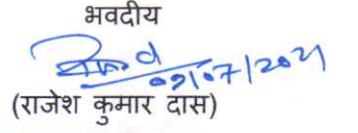 भवदीय
07/07/2021
(राजेश कुमार दास)